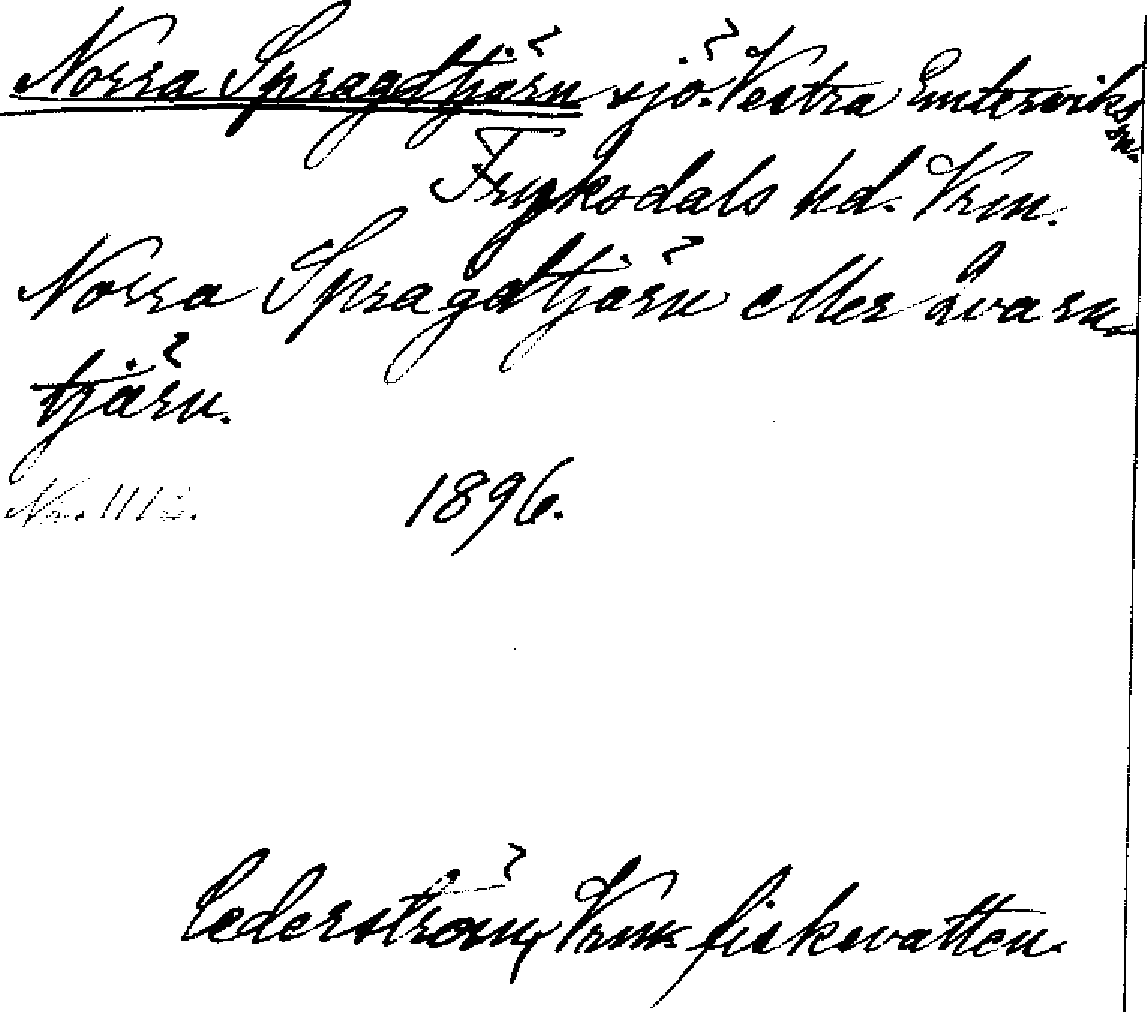 Norra Spragdtjärn sjö. Vestra Emterviks sn.
Fryksdals hd. Vrm.
Norra Spragdtjärn eller Qvarn-
tjärn.
Nr. 1896.
Cederström, Vrms fiskevatten.